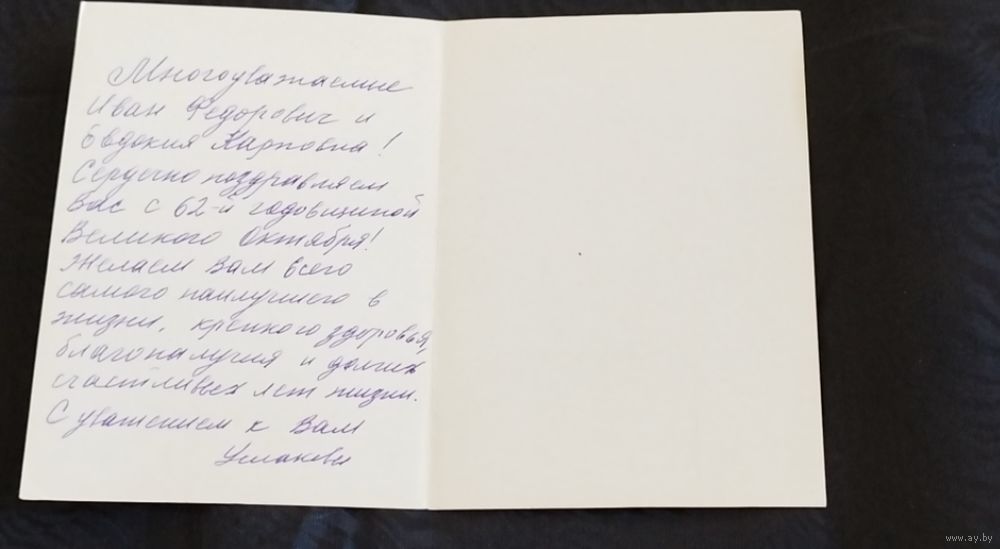 Многоуважаемые
Иван Федорович и
Евдокия Карповна!
Сердечно поздравляем
Вас с 62-й годовщиной
Великого Октября!
Желаем Вам всего
самого наилучшего в
жизни, крепкого здоровья,
благополучия и долгих
счастливых лет жизни.
С уважением к Вам
www.ay.by